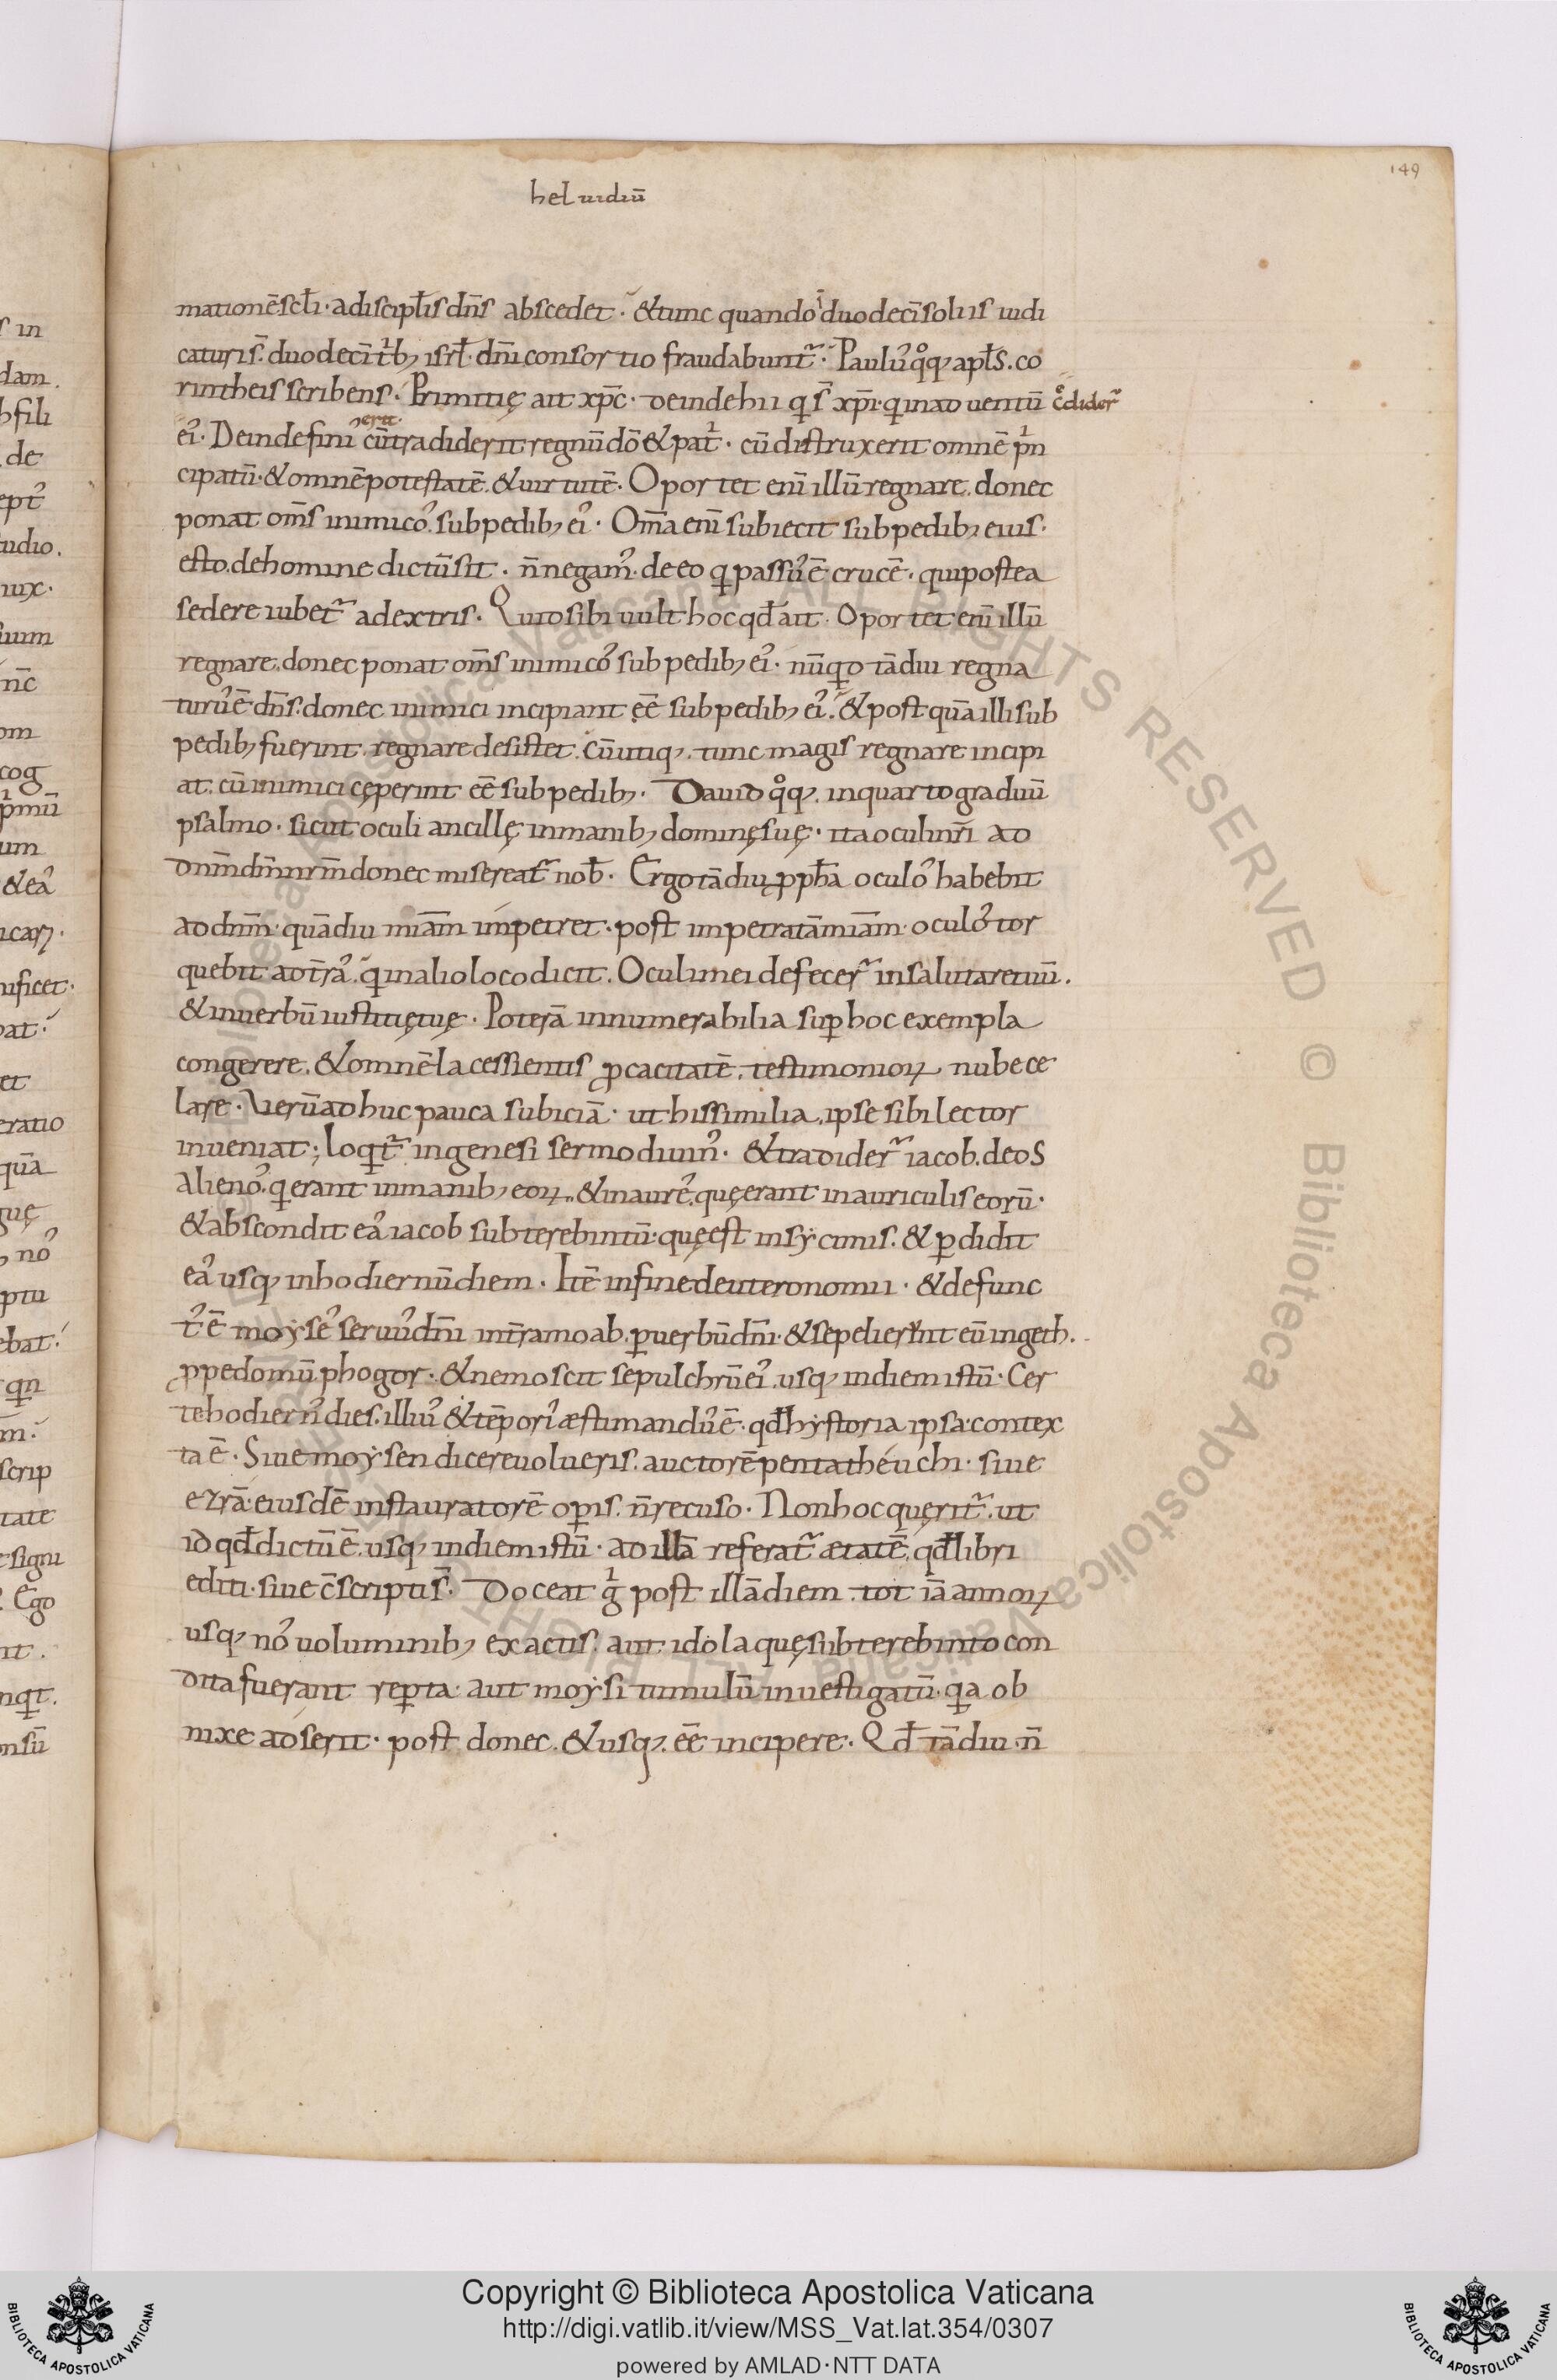 149
heluidiū
mationē scłi · a discipłis dn̄s abscedet · & tunc quando ı̓ duodecī soliis iudi
caturi s̄ · duodecī trib; isrł · dn̄i consortio fraudabunt᷑ · Paulu᾿ qͦq; apłs . co
rintheis scribens · Primitię ait xp̄c · deinde hii qͥ s̄ xp̄i · qͥ in aduentū c̄dider᷑
ei᾿ · Deinde fini᾿ erit · cū tradiderit regnū dō & patͥ · cū distruxerit omnē pͥn
cipatū · & omnē potestatē . & uirtutē · Oportet enī illū regnare . donec
ponat om̄s inimico᾿ . sub pedib; ei᾿ · Om̄a enī subiecit sub pedib; eius ·
esto . de homine dictū sit · n̄ negam᾿ · de eo qͥ passu᾿ ē crucē · qui postea
sedere iubet᷑ a dextris · Quid sibi uult hoc qđ ait · Oportet enī illū
regnare . donec ponat om̄s inimico᾿ sub pedib; ei᾿ · nūqͥd tādiu regna
turu᾿ ē dn̄s . donec inimici incipiant ęē sub pedib; ei᾿ · & post quā illi sub
pedib; fuerint . regnare desistet . Cū utiq; . tunc magis regnare incipi
at . cū inimici cęperint eē sub pedib; · Dauid qͦq; . in quarto graduū
psalmo · sicut oculi ancillę in manib; dominę suę · ita oculi nr̄i ad
dnm̄ dm̄ nr̄m donec misereat᷑ nob̄ · Ergo tādiu ꝓph̄a oculo᾿ habebit
ad dnm̄ · quādiu miam̄ impetret · post impetratā miam̄ · oculo᾿ tor
quebit ad tr̄a᾿ · qͥ in alio loco dicit . Oculi mei defecer᷑ in salutare tuū .
& in uerbū iustitię tuę · Poterā innumerabilia suꝑ hoc exempla
congerere . & omnē lacessientis ꝓcacitatē . testimonioꝝ nube ce
lare · Verū adhuc pauca subiciā · ut his similia . ipse sibi lector
inueniat ; loqͥt᷑ in genesi sermo diuin᾿ · & tradider᷑ iacob . deos
alieno᾿ . qͥ erant in manib; eoꝝ . & inaure᾿ . quę erant in auriculis eorū ·
& abscondit ea᾿ iacob sub terebintū · quę est in sẏcimis . & ꝑdidit
ea᾿ usq; in hodiernū diem · Itē in fine deuteronomii · & defunc
t᾿ ē moẏse᾿ seruu᾿ dn̄i in tr̄a moab . ꝑ uerbū dn̄i · & sepelierunt eū in geth .
ꝓpe domū phogor · & nemo scit sepulchrū ei᾿ . usq; in diem istū · Cer
te hodiern᾿ dies . illiu᾿ & tēpori᾿ æstimandu᾿ ē · qđ hẏstoria ipsa contex
ta ē · Siue moẏsen dicere uolueris . auctorē pentatheuchi · siue
ezrā . eiusdē instauratorē oꝑis . n̄ recuso · Non hoc quęrit᷑ . ut
id qđ dictū ē . usq; in diem istū · ad illā referat᷑ ætatē . qđ libri
editi · siue c̄scripti s̄ · Doceat gͥ post illā diem . tot iā annoꝝ
usq; no᾿ uoluminib; exactis . aut idola quę sub terebinto con
dita fuerant reꝑta · aut moẏsi tumulū inuestigatū · qͥa ob
nixe adserit · post donec . & usq; . eē incipere · Qđ tādiu · n̄
ALL RIGHTS RESERVED © Biblioteca Apostolica Vaticana
Copyright © Biblioteca Apostolica Vaticana
http://digi.vatlib.it/view/MSS_Vat.lat.354/0307
powered by AMLAD·NTT DATA
BIBLIOTECA APOSTOLICA VATICANA
BIBLIOTECA APOSTOLICA VATICANA